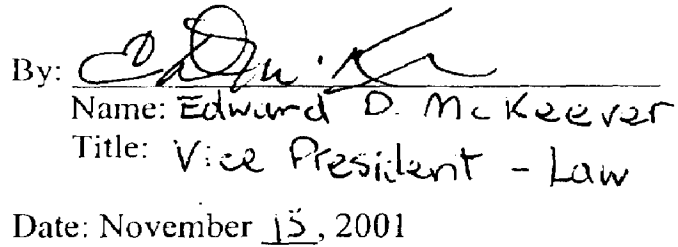 By:
Name: Edward D. McKeever
Title: Vice President - Law
Date: November 15, 2001